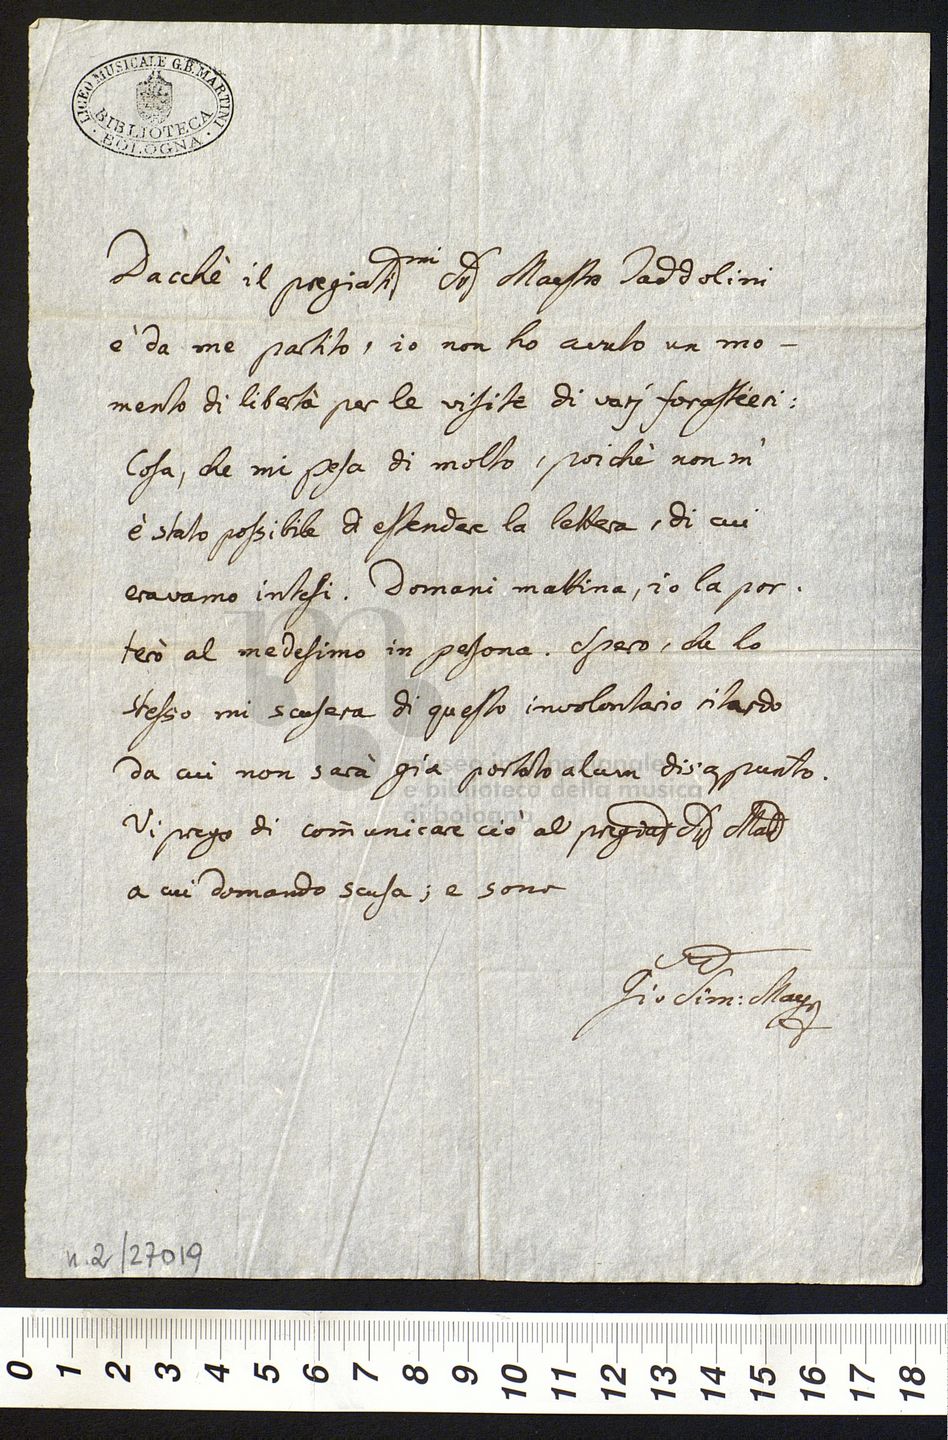 LICEO MUSICALE G.B. MARTINI
BIBLIOTECA
BOLOGNA
Dacchè il pregiatmi Sigr Maestro Taddolini
è da me partito, io non ho avuto un mo-
mento di libertà per le visite di varj forastieri:
Cosa, che mi pesa di molto, poichè non m'
è stato possibile di estendere la lettera, di cui
eravamo intesi. Domani mattina, io la por-
terò al medesimo in persona. Spero, che lo
stesso mi scusera di questo involontario ritardo
da cui non sarà gia portato alcun disappunto.
Vi prego di com̃unicare ciò al pregiat Sigr
a cui domando scusa; e sono
Gio Sim: Mayr
museo internazionale
e biblioteca della musica
di bologna
n.2/27019
0 1 2 3 4 5 6 7 8 9 10 11 12 13 14 15 16 17 18